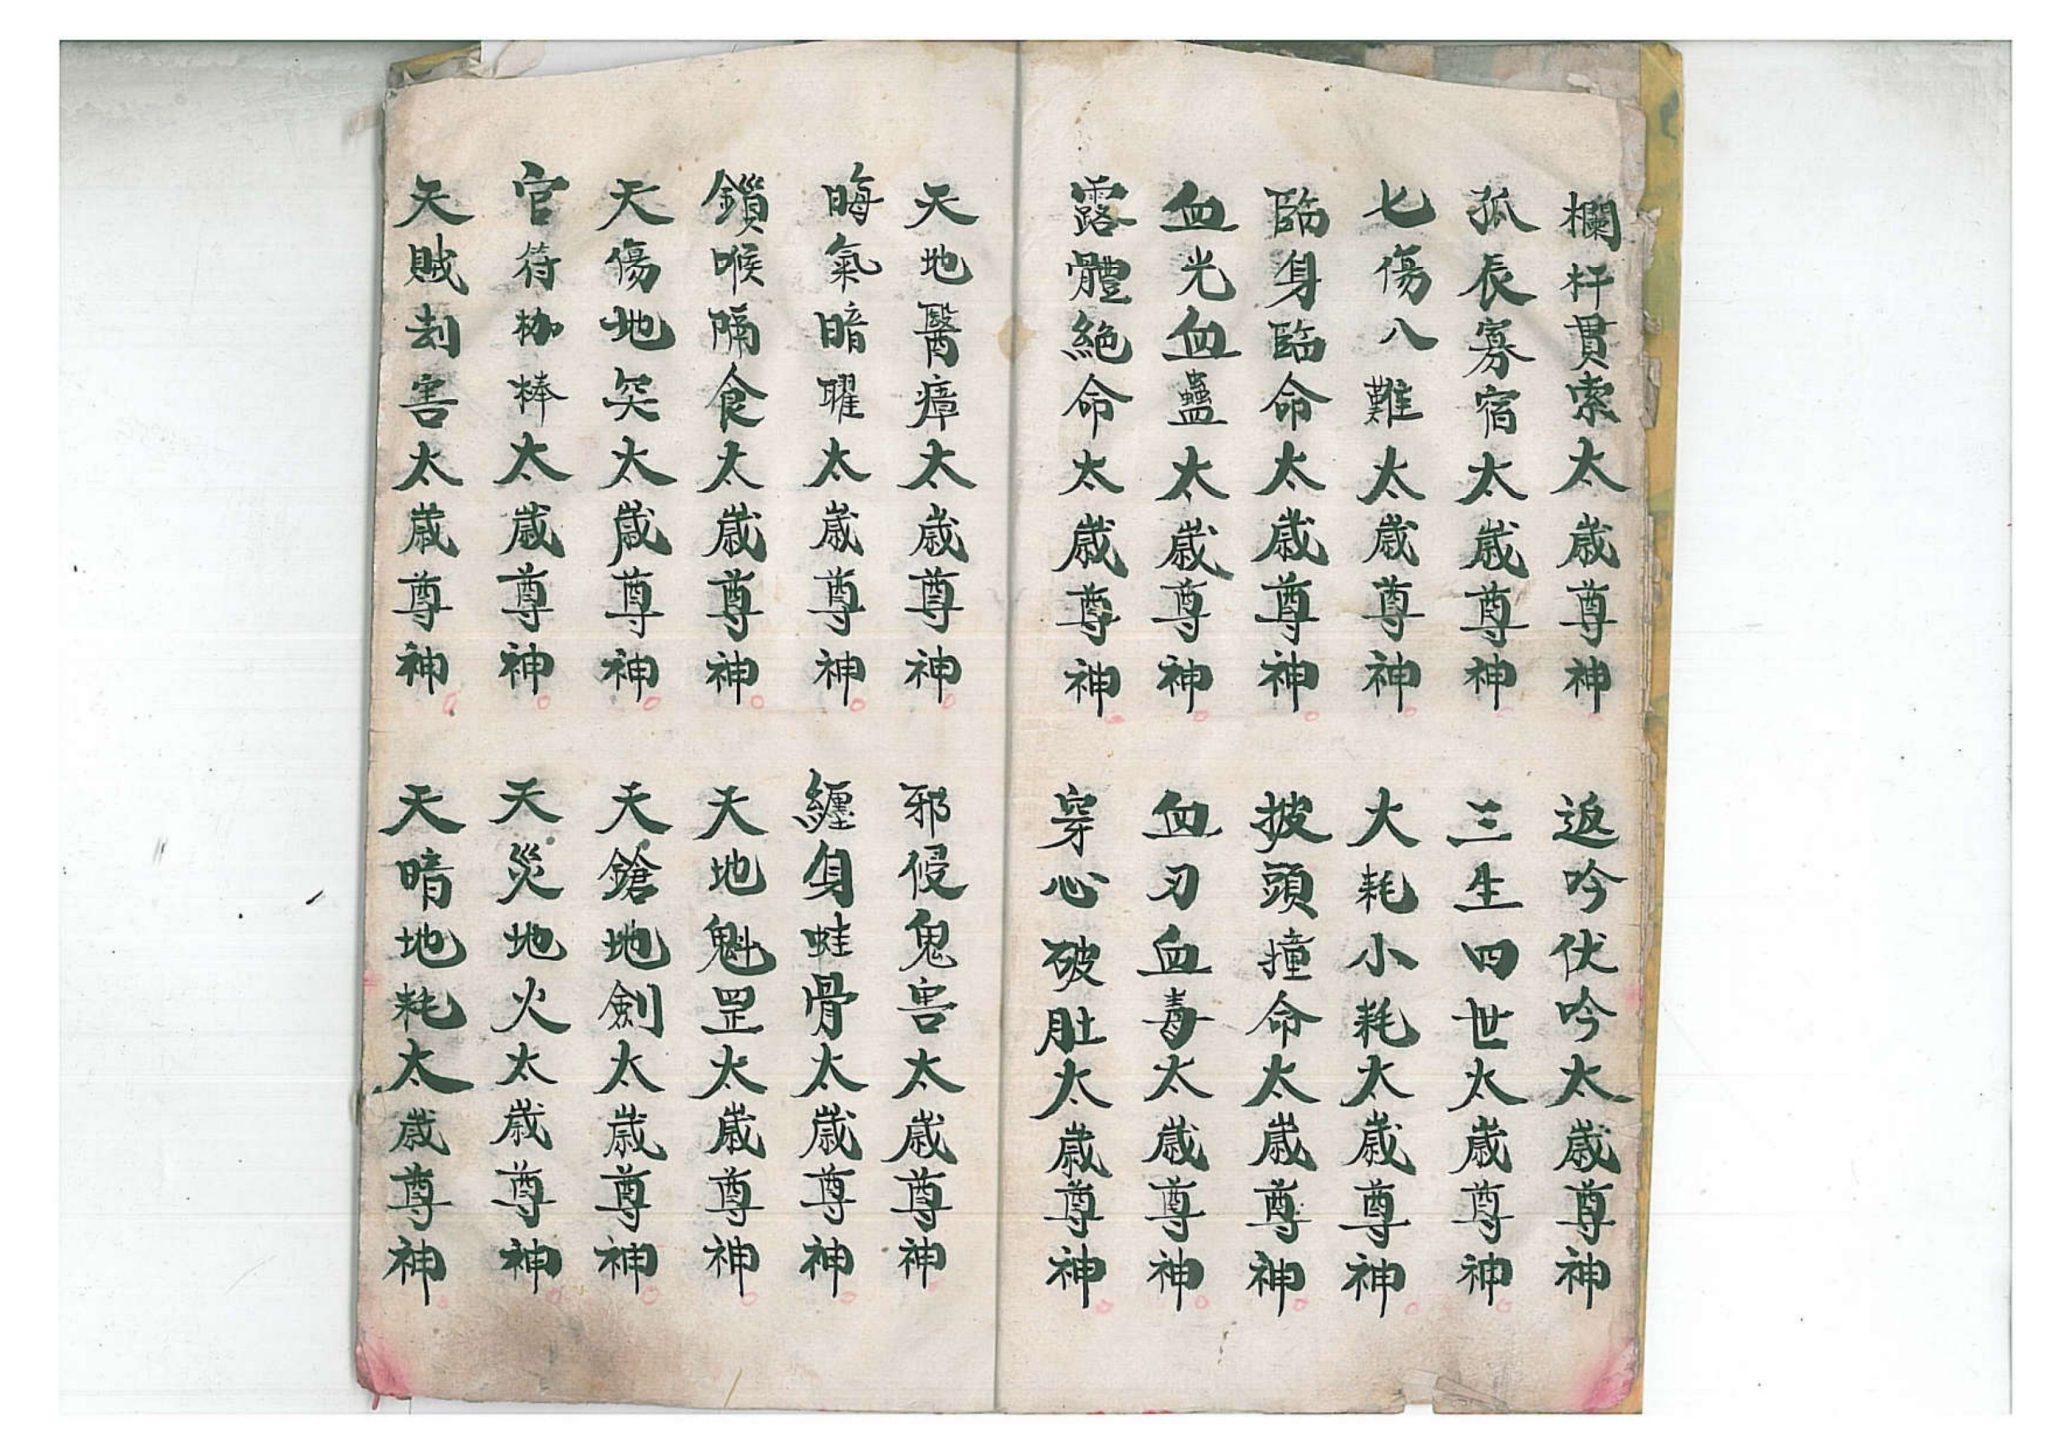 欄杆貫索太歲尊神
返吟伏吟太歲尊神
孤辰寡宿太歲尊神
三生四世太歲尊神
七傷八難太歲尊神
大耗小耗太歲尊神
臨身臨命太歲尊神
披頭撞命太歲尊神
血光血蠱太歲尊神
血刃血毒太歲尊神
露體絕命太歲尊神
穿心破肚太歲尊神
天地醫瘴太歲尊神
邪侵鬼害太歲尊神
晦氣暗曜太歲尊神
纏身蛀骨太歲尊神
鎖喉隔食太歲尊神
天地魁罡太歲尊神
天傷地突太歲尊神
天鎗地劍太歲尊神
官符枷棒太歲尊神
天災地火太歲尊神
天賊刦害太歲尊神
天暗地耗太歲尊神